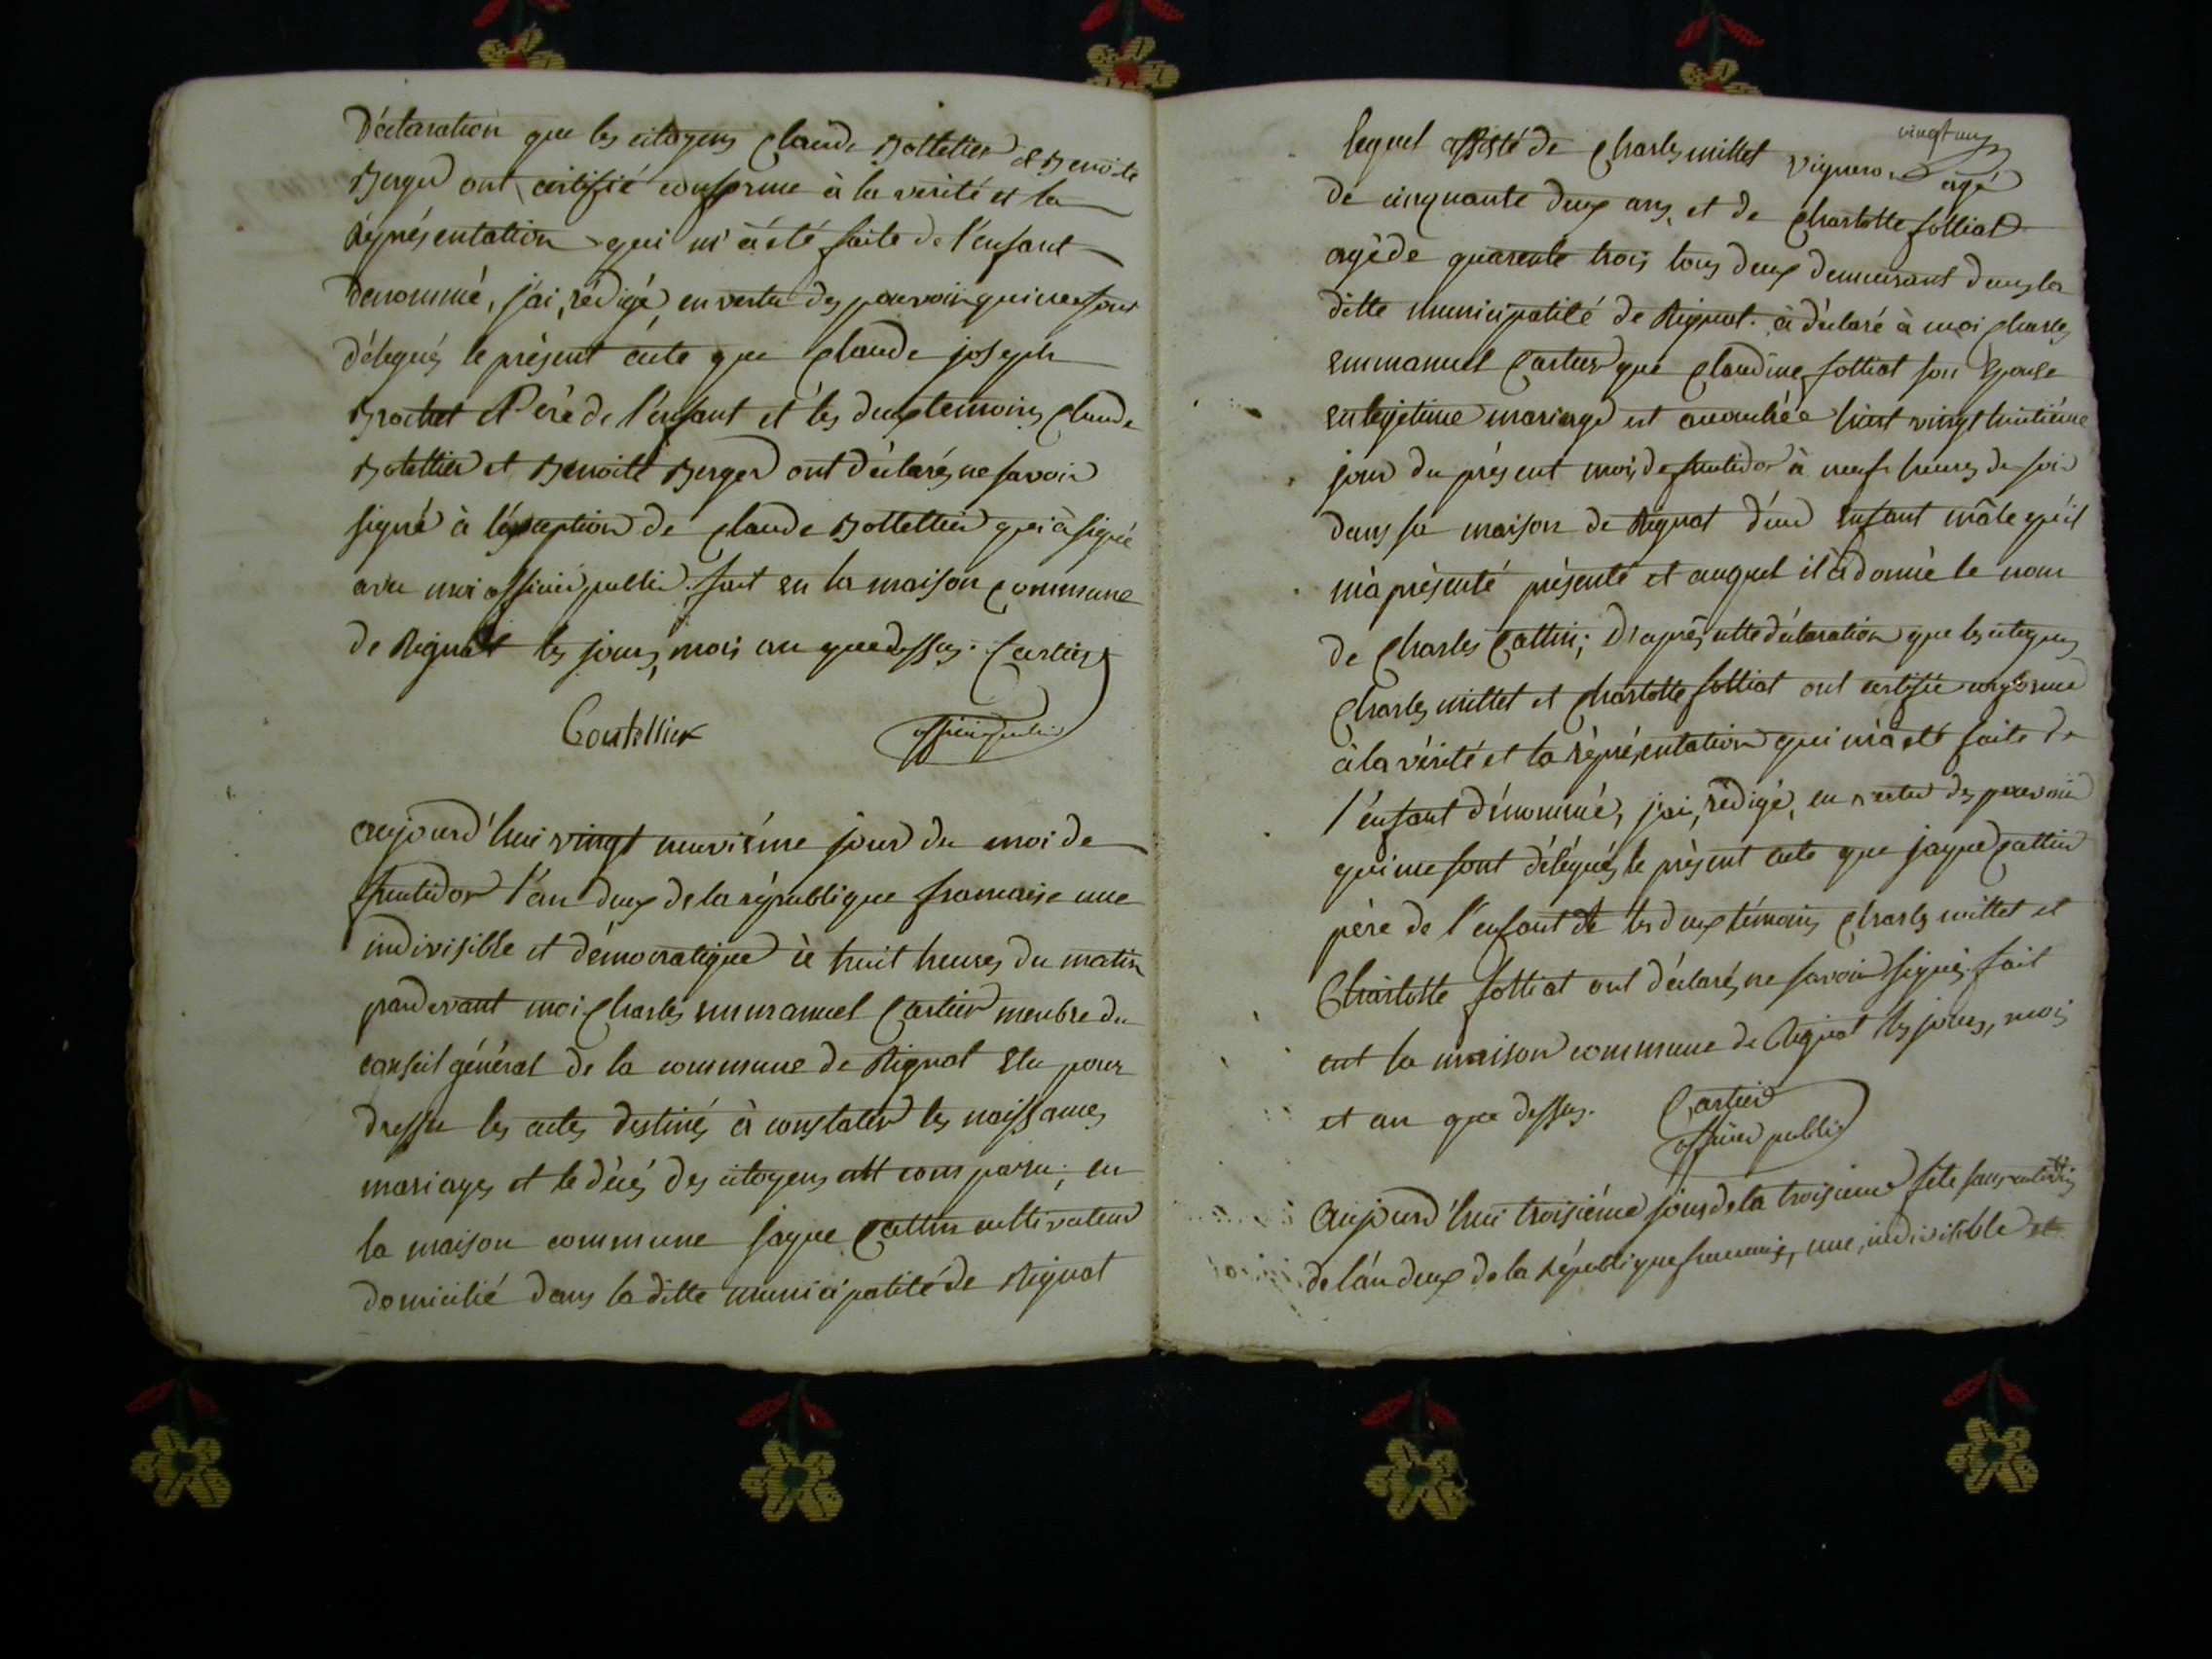 Déclaration que les citoyens Claude Bottellier & Benoite
Berger ont certifié conforme à la verité et la
réprésentation qui m'à été faite de l'enfant
denommé, j'ai, rédigé, en vertu des pouvoir qui me sont
délégués le présent acte que Claude joseph
Brochet et Pére de l'enfant et les deux temoins Claude
Botellier et Benoite Berger ont déclarés ne savoir
signé à l'éxception de Claude Bottellier qui à signé
avec moi officier public. fait en la maison Commune
de Rignat les jours, mois an que dessus. Cartier
Boutellier officier public
aujourd'hui vingt neuviéme jour du moi de
fructidor l'an deux de la république francaise une
indivisible et démocratique à huit heures du matin
pardevant moi Charles emmanuel Cartier menbre du
conseil général de la commune de Rignat elu pour
dresser les actes destinés à constater les naissances
mariages et le décés des citoyens est comparu, en
la maison commune jaque Cattin cultivateur
domicilié dans la ditte municipalité de Rignat
vingt un
lequel assisté de Charles millet vigneron agé
de cinquante deux ans, et de Charlotte folliat
agé de quarente trois tous deux demeurant dans la
ditte municipalité de Rignat. à déclaré à moi Charles
emmanuel Cartier que Claudine folliat son Epouse
en legitime mariage est accouchée hiert vingt huitiéme
jour du présent mois de fructidor à neufs heures du soir
dans sa maison de Rignat d'un enfant mâle qu'il
m'à présenté présenté et auquel il à donné le nom
de Charles Cattin; D'aprés cette déclaration que les citoyens
Charles millet et Charlotte folliat ont certifié conforme
à la vérité et la réprésentation qui m'à été faite de
l'enfant dénommé, j'ai, rédigé, en vertu des pouvoir
qui me sont délégués le présent acte que jaque Cattin
père de l'enfant et les deux témoins Charles millet et
Charlotte folliat ont déclarés ne savoir signé. fait
ent la maison commune de Rignat les jours, mois
et an que dessus. Cartier
officier public
Aujourd'hui troisiéme jour de la troisieme fête sansculottides
de l'an deux de la République francaise, une, indivisible et